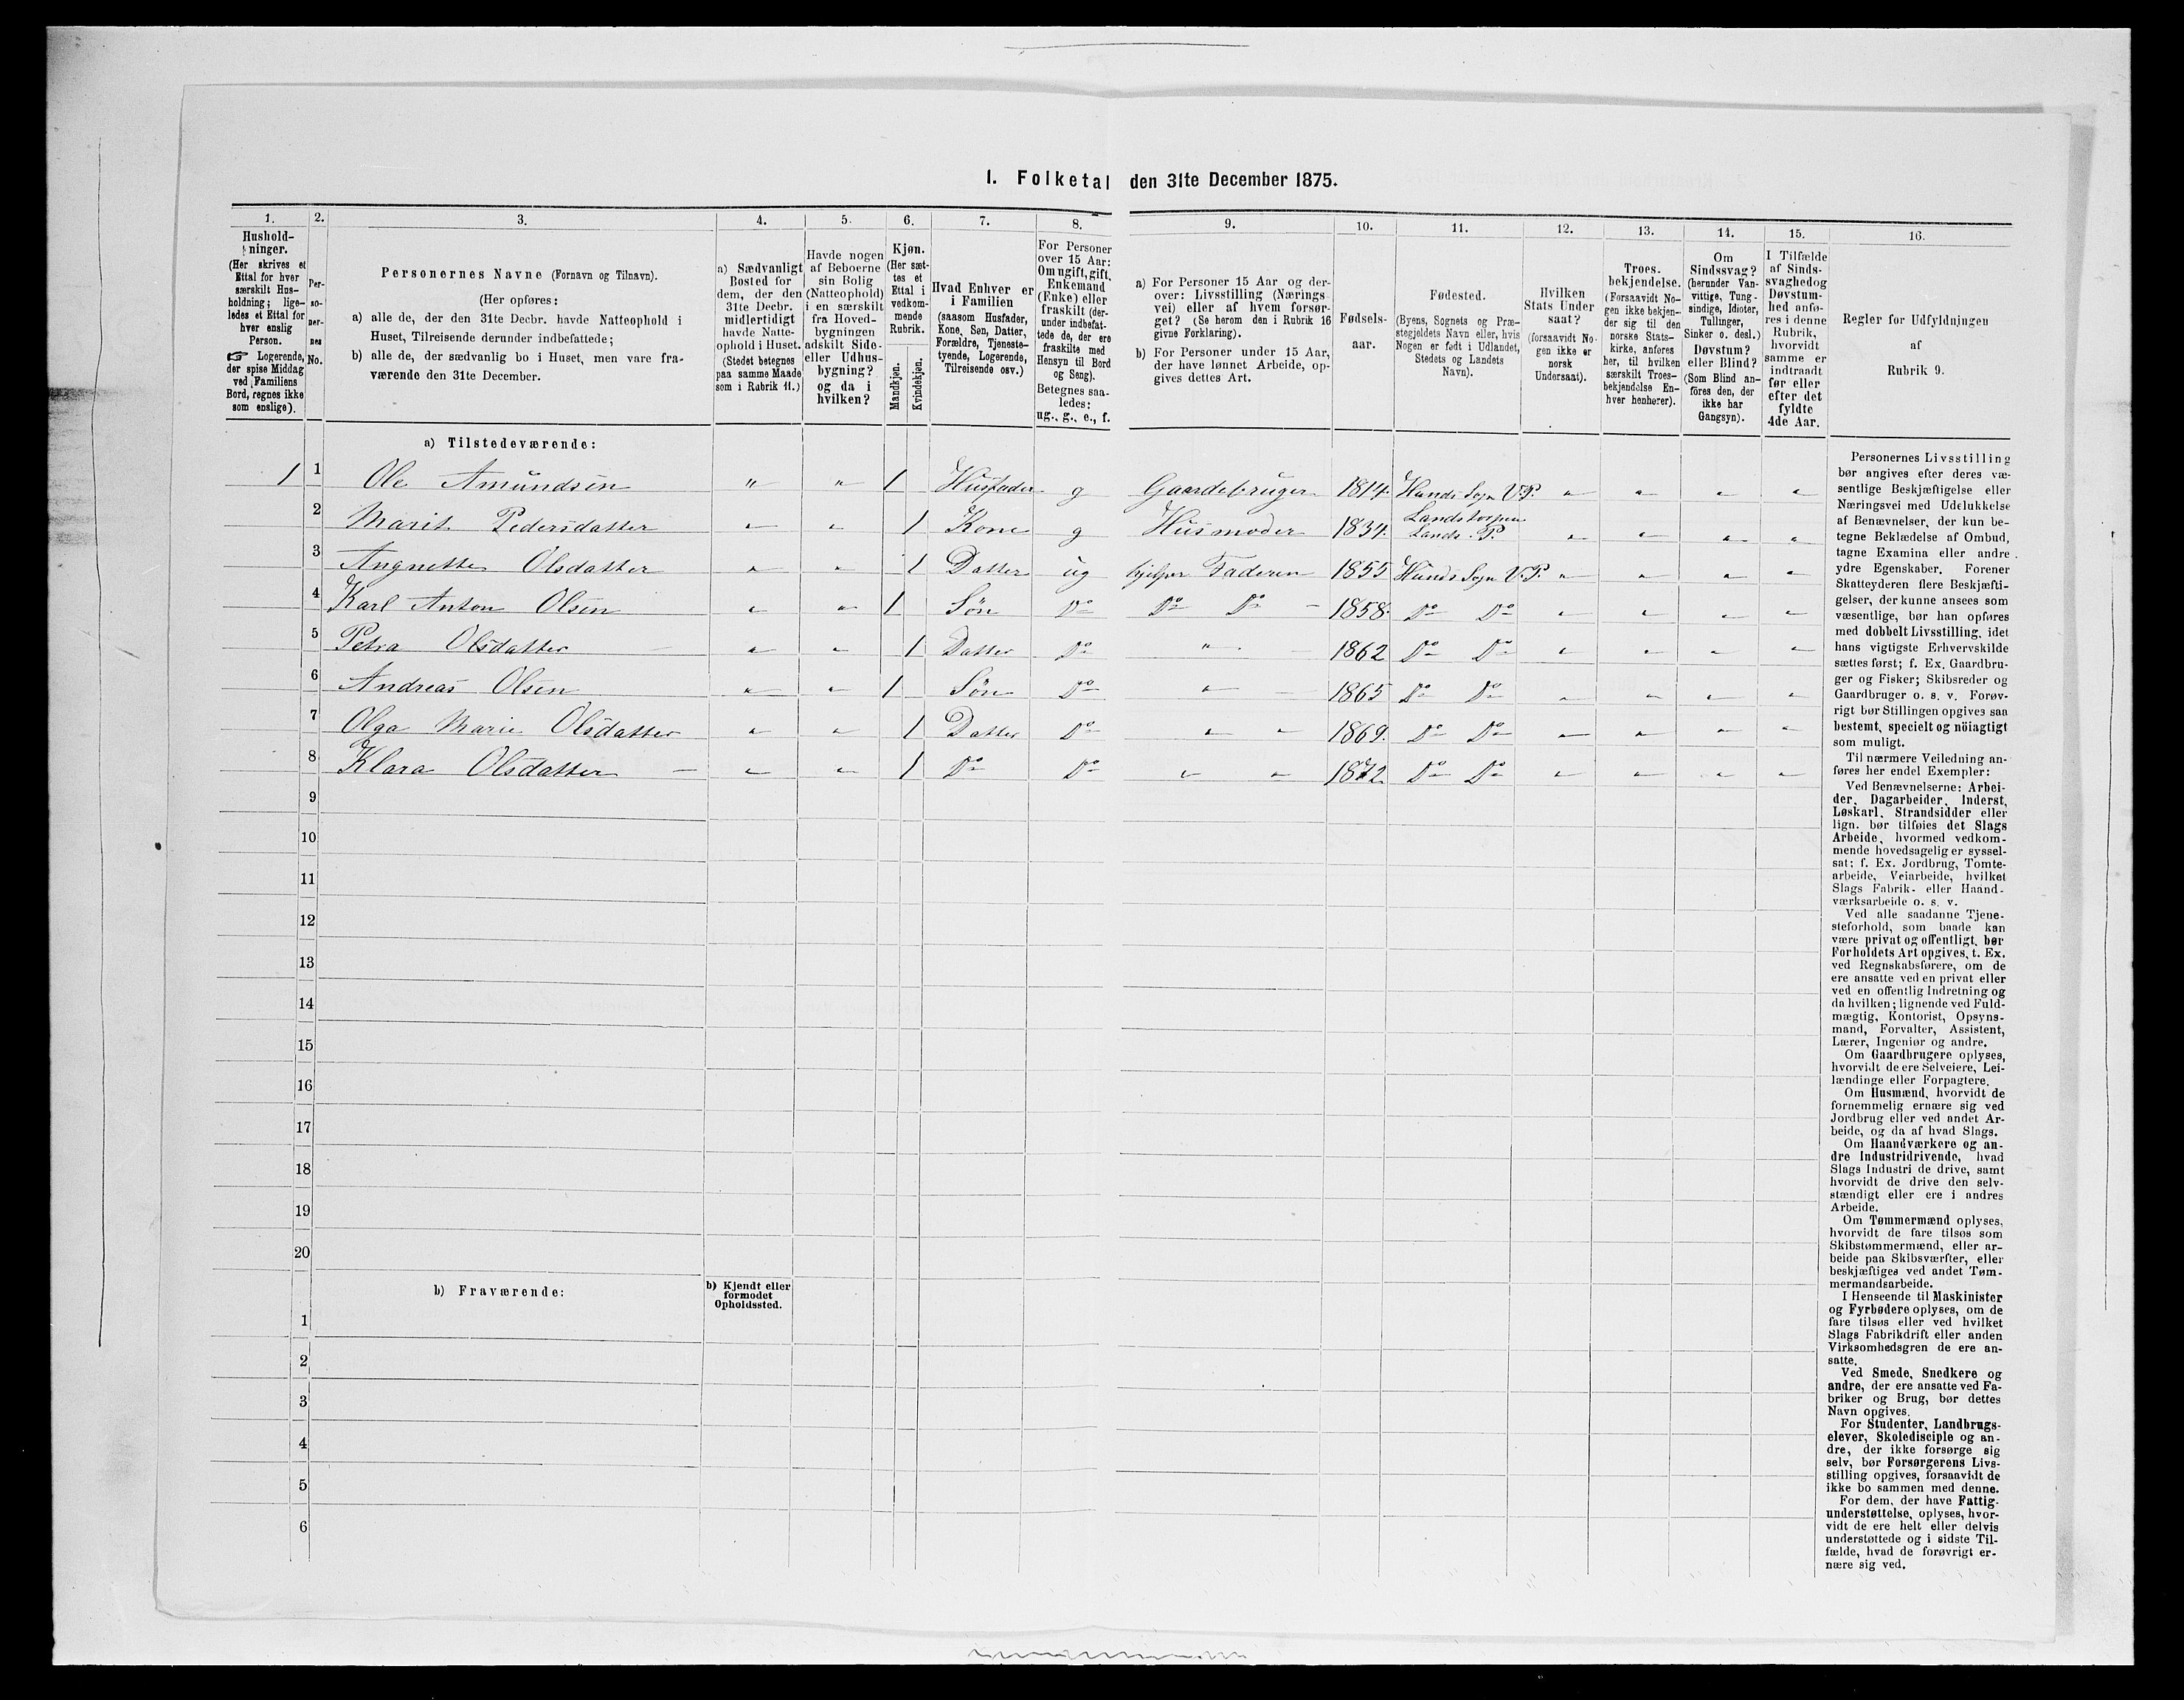 I. Folketal den 31te December 1875.
1. 2. 3. 4. 5. 6. 7. 8. 9. 10. 11. 12. 13. 14. 15. 16.
Hushold-
ninger.
(Her skrives et
Ettal for hver
særskilt Hus-
holdning; lige-
ledes et Ettal for
hver enslig
Person.
☞ Logerende,
der spise Middag
ved Familiens
Bord, regnes ikke
som enslige).
Per-
so-
ner-
nes
No.
Personernes Navne (Fornavn og Tilnavn).
(Her opføres:
a) alle de, der den 31te Decbr. havde Natteophold i
Huset, Tilreisende derunder indbefattede;
b) alle de, der sædvanlig bo i Huset, men vare fra-
værende den 31te December.
a) Sædvanligt
Bosted for
dem, der den
31te Decbr.
midlertidigt
havde Natte-
ophold i Huset.
(Stedet betegnes
paa samme Maade
som i Rubrik 11.)
Havde nogen
af Beboerne
sin Bolig
(Natteophold)
i en særskilt
fra Hoved-
bygningen
adskilt Side-
eller Udhus-
bygning?
og da i
hvilken?
Kjøn.
(Her sæt-
tes et
Ettal i
vedkom-
mende
Rubrik.
Mandkjøn.
Kvindekjøn.
Hvad Enhver er
i Familien
(saasom Husfader,
Kone, Søn, Datter,
Forældre, Tjeneste-
tyende, Logerende,
Tilreisende osv.)
For Personer
over 15 Aar:
Om ugift, gift,
Enkemand
(Enke) eller
fraskilt (der-
under indbefat-
tede de, der ere
fraskilte med
Hensyn til Bord
og Seng).
Betegnes saa-
ledes:
ug., g., e., f.
a) For Personer 15 Aar og der-
over: Livsstilling (Nærings-
vei) eller af hvem forsør-
get? (Se herom den i Rubrik 16
givne Forklaring).
b) For Personer under 15 Aar,
der have lønnet Arbeide, op-
gives dettes Art.
Fødsels-
aar.
Fødested.
(Byens, Sognets og Præ-
stegjeldets Navn eller, hvis
Nogen er født i Udlandet,
Stedets og Landets
Navn).
Hvilken
Stats Under
saat?
(forsaavidt No-
gen ikke er
norsk
Undersaat).
Troes-
bekjendelse.
(Forsaavidt No-
gen ikke bekjen-
der sig til den
norske Stats-
kirke, anføres
her, til hvilken
særskilt Troes-
bekjendelse En-
hver henhører).
Om
Sindssvag?
(herunder Van-
vittige, Tung-
sindige, Idioter,
Tullinger,
Sinker o. desl.)
Døvstum?
eller Blind?
(Som Blind an-
føres den, der
ikke har
Gangsyn).
I Tilfælde
af Sinds-
svaghed og
Døvstum-
hed anfø-
res i denne
Rubrik,
hvorvidt
samme er
indtraadt
før eller
efter det
fyldte
4de Aar.
Regler for Udfyldningen
af
Rubrik 9.
a) Tilstedeværende:
1 1 Ole Amundsen " " 1 Husfader g Gaardebruger 1814. Hunds Sogn V.P. " " " "
2 Marit Pedersdatter " " 1 Kone g Husmoder 1834. Landstorpen Lands. P. " " " "
3 Angnette Olsdatter " " 1 Datter ug hjelper Faderen 1855 Hunds Sogn V.P. " " " "
4 Karl Anton Olsen " " 1 Søn Do Do Do 1858. Do Do " " " "
5 Petra Olsdatter " " 1 Datter Do " 1862 Do Do " " " "
6 Andreas Olsen " " 1 Søn Do " 1865 Do Do " " " "
7 Olga Marie Olsdatter " " 1 Datter Do " " 1869. Do Do " " " "
8 Klara Olsdatter " " 1 Do Do " " 1872 Do Do " " " "
9
10
11
12
13
14
15
16
17
18
19
20
b) Fraværende:
b) Kjendt eller
formodet
Opholdssted.
1
2
3
4
5
6
Personernes Livsstilling
bør angives efter deres væ-
sentlige Beskjæftigelse eller
Næringsvei med Udelukkelse
af Benævnelser, der kun be-
tegne Beklædelse af Ombud,
tagne Examina eller andre
ydre Egenskaber. Forener
Skatteyderen flere Beskjæfti-
gelser, der kunne ansees som
væsentlige, bør han opføres
med dobbelt Livsstilling, idet
hans vigtigste Erhvervskilde
sættes først; f. Ex. Gaardbru-
ger og Fisker; Skibsreder og
Gaardbruger o. s. v. Forøv-
rigt bør Stillingen opgives saa
bestemt, specielt og nöiagtigt
som muligt.
Til nærmere Veiledning an-
føres her endel Exempler:
Ved Benævnelserne: Arbei-
der, Dagarbeider, Inderst,
Løskarl, Strandsidder eller
lign. bør tilføies det Slags
Arbeide, hvormed vedkom-
mende hovedsagelig er syssel-
sat; f. Ex. Jordbrug, Tomte-
arbeide, Veiarbeide, hvilket
Slags Fabrik- eller Haand-
værksarbeide o. s. v.
Ved alle saadanne Tjene-
steforhold, som baade kan
være privat og offentligt, bør
Forholdets Art opgives, t. Ex.
ved Regnskabsførere, om de
ere ansatte ved en privat eller
ved en offentlig Indretning og
da hvilken; lignende ved Fuld-
mægtig, Kontorist, Opsyns-
mand, Forvalter, Assistent,
Lærer, Ingeniør og andre.
Om Gaardbrugere oplyses,
hvorvidt de ere Selveiere, Lei-
lændinge eller Forpagtere.
Om Husmænd, hvorvidt de
fornemmelig ernære sig ved
Jordbrug eller ved andet Ar-
beide, og da af hvad Slags.
Om Haandværkere og an-
dre Industridrivende, hvad
Slags Industri de drive, samt
hvorvidt de drive den selv-
stændigt eller ere i andres
Arbeide.
Om Tømmermænd oplyses,
hvorvidt de fare tilsøs som
Skibstømmermænd, eller ar-
beide paa Skibsværfter, eller
beskjæftiges ved andet Tøm-
mermandsarbeide.
I Henseende til Maskinister
og Fyrbødere oplyses, om de
fare tilsøs eller ved hvilket
Slags Fabrikdrift eller anden
Virksomhedsgren de ere an-
satte.
Ved Smede, Snedkere og
andre, der ere ansatte ved Fa-
briker og Brug, bør dettes
Navn opgives.
For Studenter, Landbrugs-
elever, Skoledisciple og an-
dre, der ikke forsørge sig
selv, bør Forsørgerens Livs-
stilling opgives, forsaavidt de
ikke bo sammen med denne.
For dem, der have Fattig-
understøttelse, oplyses, hvor-
vidt de ere helt eller delvis
understøttede og i sidste Til-
fælde, hvad de forøvrigt er-
nære sig ved.